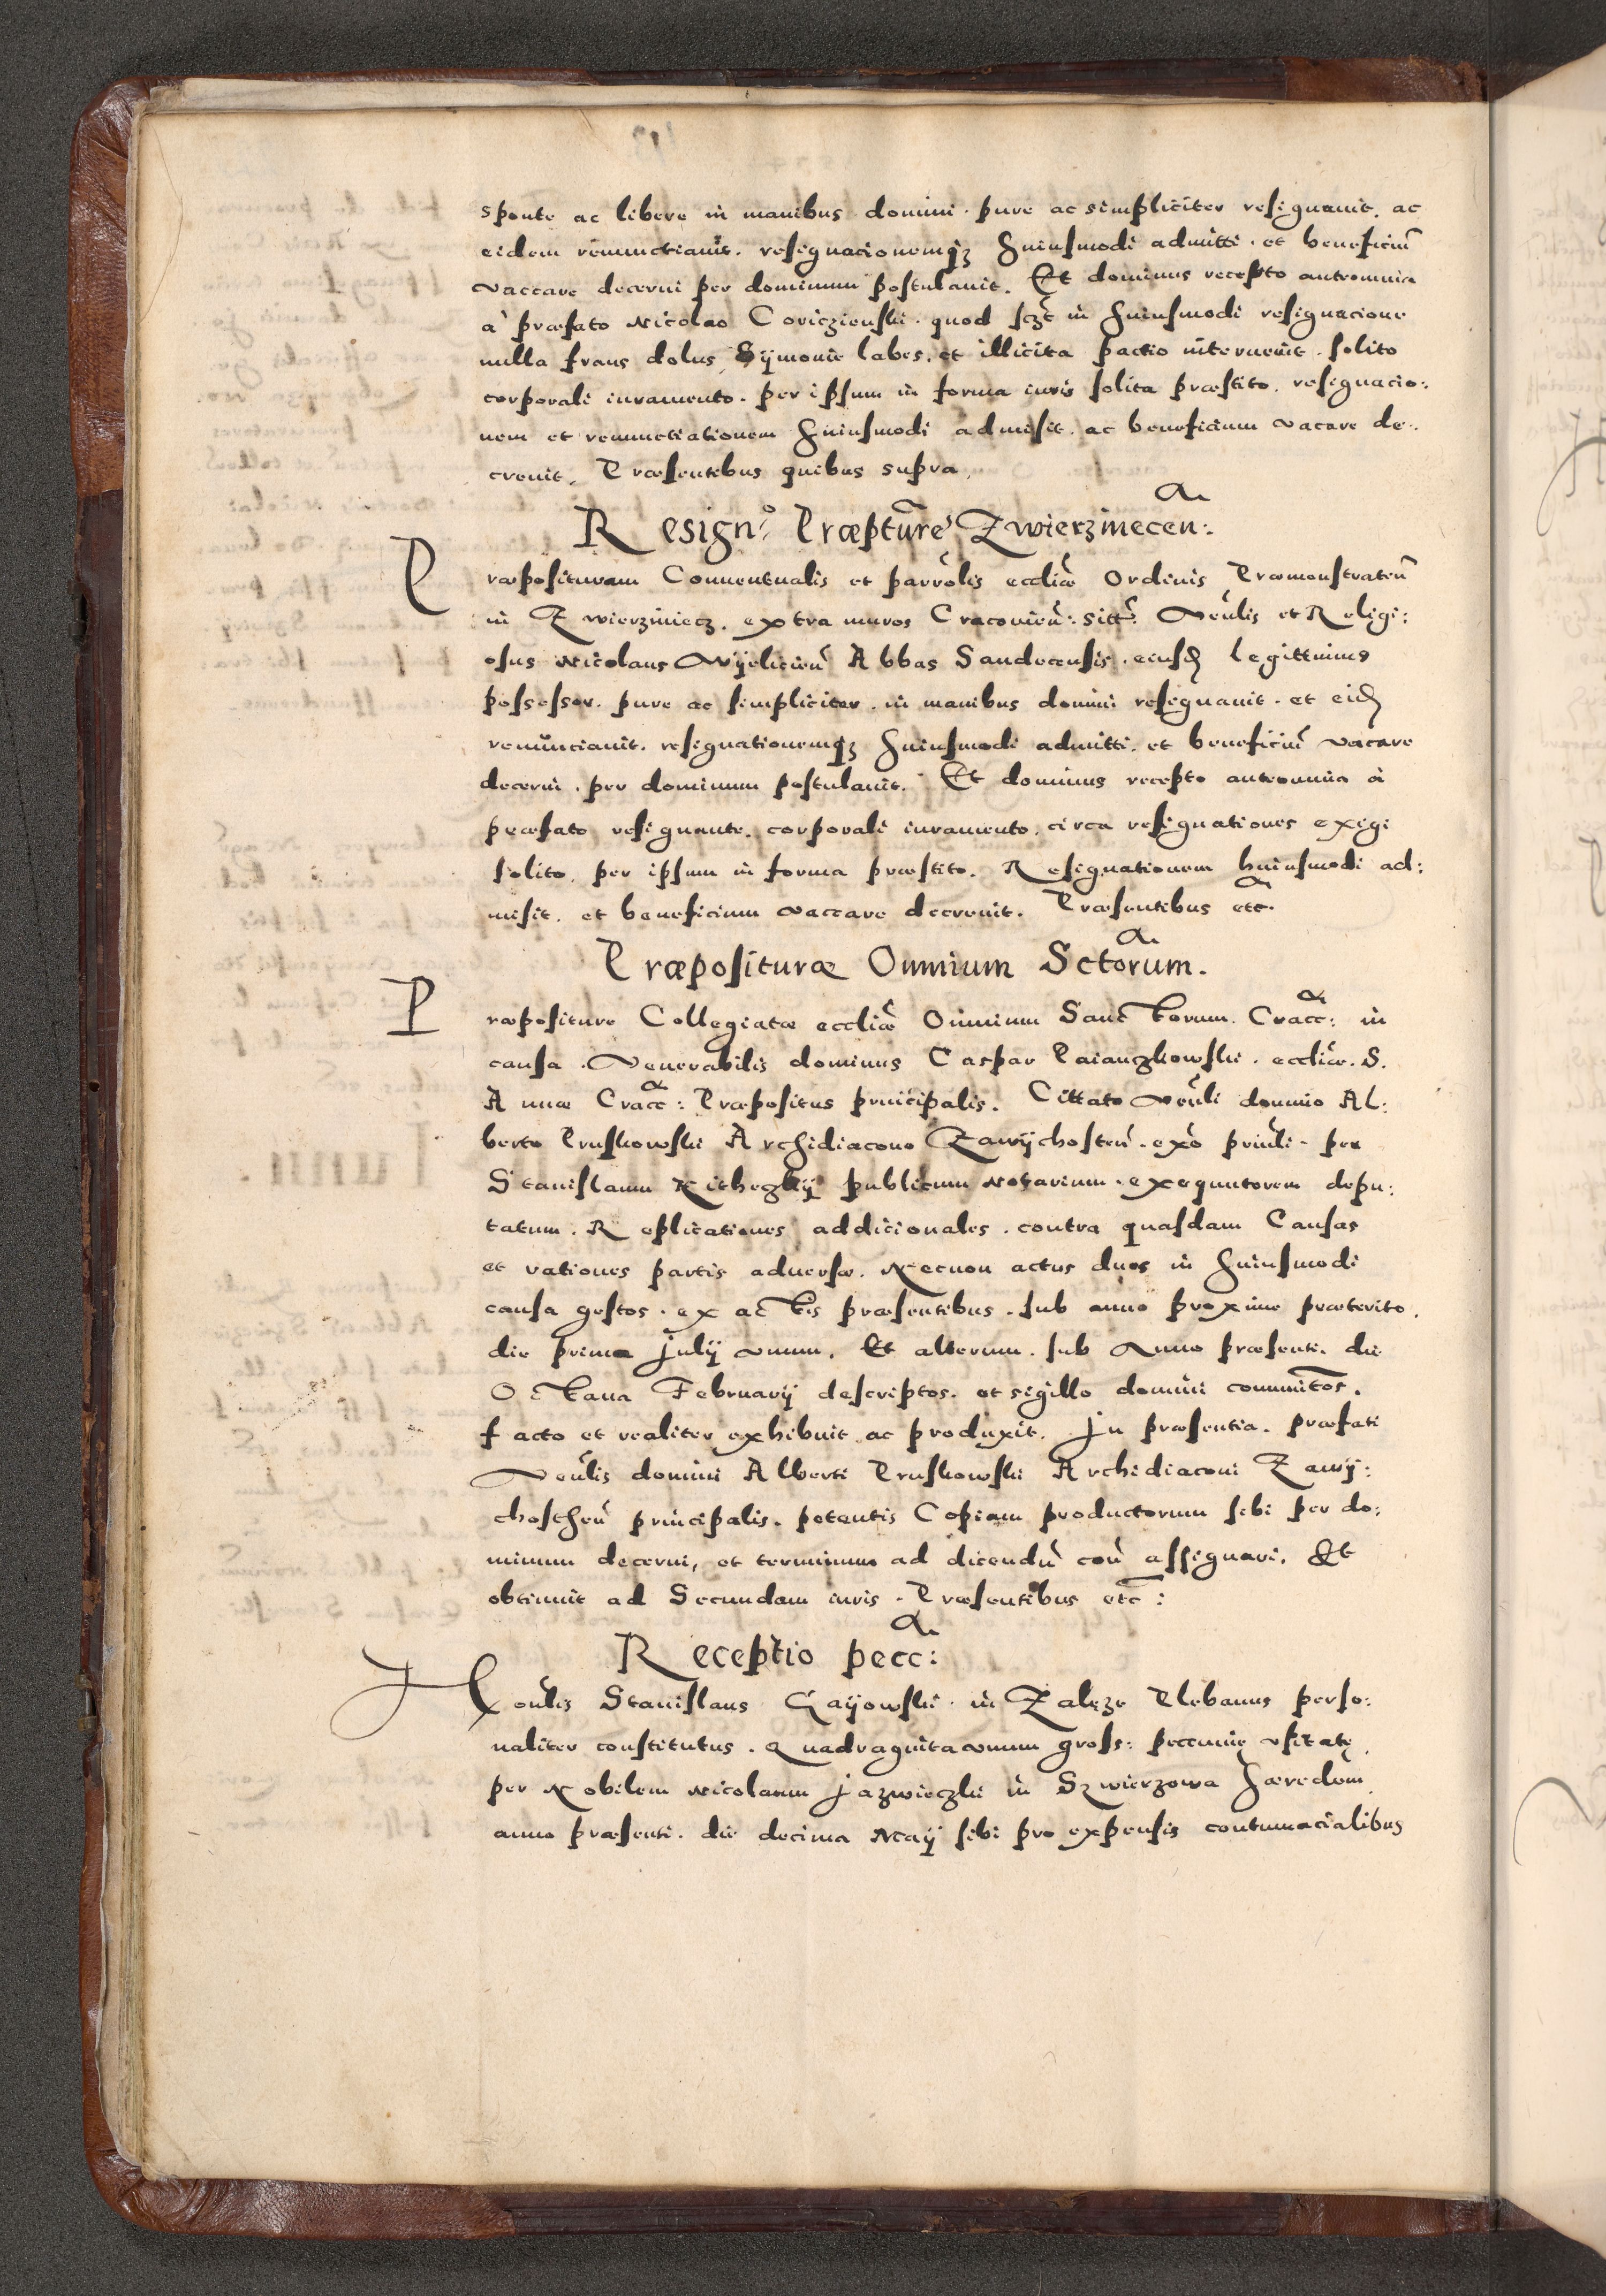 sponte ac libere in manibus domini pure ac simpliciter resignauit. ac
eidem renunctiauit. resignacionemq₃ huiusmodi admitti. et beneficiũ
vaccare decerni per dominum postulauit. Et dominus recepto anteomnia
à præfato Nicolao Coriczienski. quod sczt in huiusmodi resignacione
nulla fraus dolus Sÿmonie labes. et illicita pactio interuenit. solito
corporali iuramento. per ipsum in forma iuris solita præstito. resignacio:
nem et renunctiationem huiusmodi admisit. ac beneficium vacare de:
creuit. Præsentibus quibus supra.
Resign: Præpture Zwierzinecen:
Præposituram Conuentualis et parrolis eccliæ Ordinis Præmonstrateñ
in Zwierziniecz. extra muros Cracovieñ: sitt: Veñlis et Religi:
osus Nicolaus Wÿelicieñ Abbas Sandecensis. eiusd legittimus
possessor. pure ac simpliciter. in manibus domini resignauit. et eid
renunciauit. resignationemq₃ huiusmodi admitti. et beneficiũ vacare
decerni. per dominum postulauit. Et dominus recepto anteomnia à
præfato resignante. corporali iuramento. circa resignationes exigi
solito. per ipsum in forma præstito. Resignationem huiusmodi ad:
misit. et beneficium vaccare decreuit. Præsentibus etc.
Præposituræ Omnium Sctorum.
Præpositure Collegiatæ eccliæ Omnium Sanctorum. Cracc: in
causa. Venerabilis dominus Caspar Paianczkowski. eccliæ. S.
Annæ Cracc: Præpositus principalis. Cittato veñli domino Al:
berto Pruskowski Archidiacono Zawÿchosteñ. exo priñli. per
Stanislaum publicum Notarium. exequutorem depu:
tatum. Replicationes addicionales. contra quasdam Causas
et rationes partis aduersæ. Necnon actus duos in huiusmodi
causa gestos. ex actis præsentibus. sub anno proxime præterito.
die prima Julÿ vnum. Et alterum. sub Anno præsenti. die
Octaua Februarÿ descriptos. et sigillo domini communitos.
facto et realiter exhibuit ac produxit. In præsentia. præfati
Veñlis domini Alberti Pruskowski Archidiaconi Zawÿ:
chostheñ principalis. petentis Copiam productorum sibi per do:
minum decerni, et terminum ad dicendũ coñ assignari. Et
obtinuit ad Secundam iuris. Præsentibus etc:
Receptio pecc:
Honlis Stanislaus Gaÿowski. in Zalęze Plebanus perso:
naliter constitutus. Quadragintavnum gross: peccunię vsitatę.
per Nobilem Nicolaum Jazwieczki in Szwierzowa hæredem
anno præsenti. die decima Maÿ sibi pro expensis contumacialibus